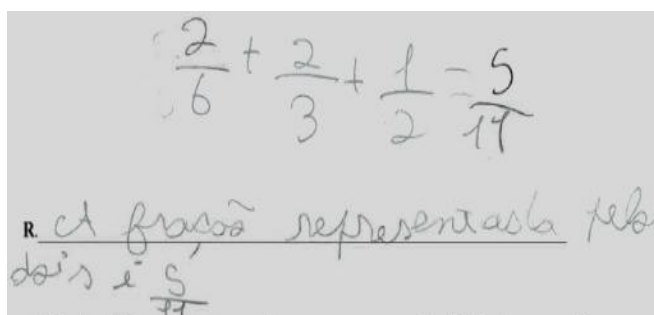 2/6 + 2/3 + 1/2 = 5/11
R. A fração representada pelo
dois é 5/11